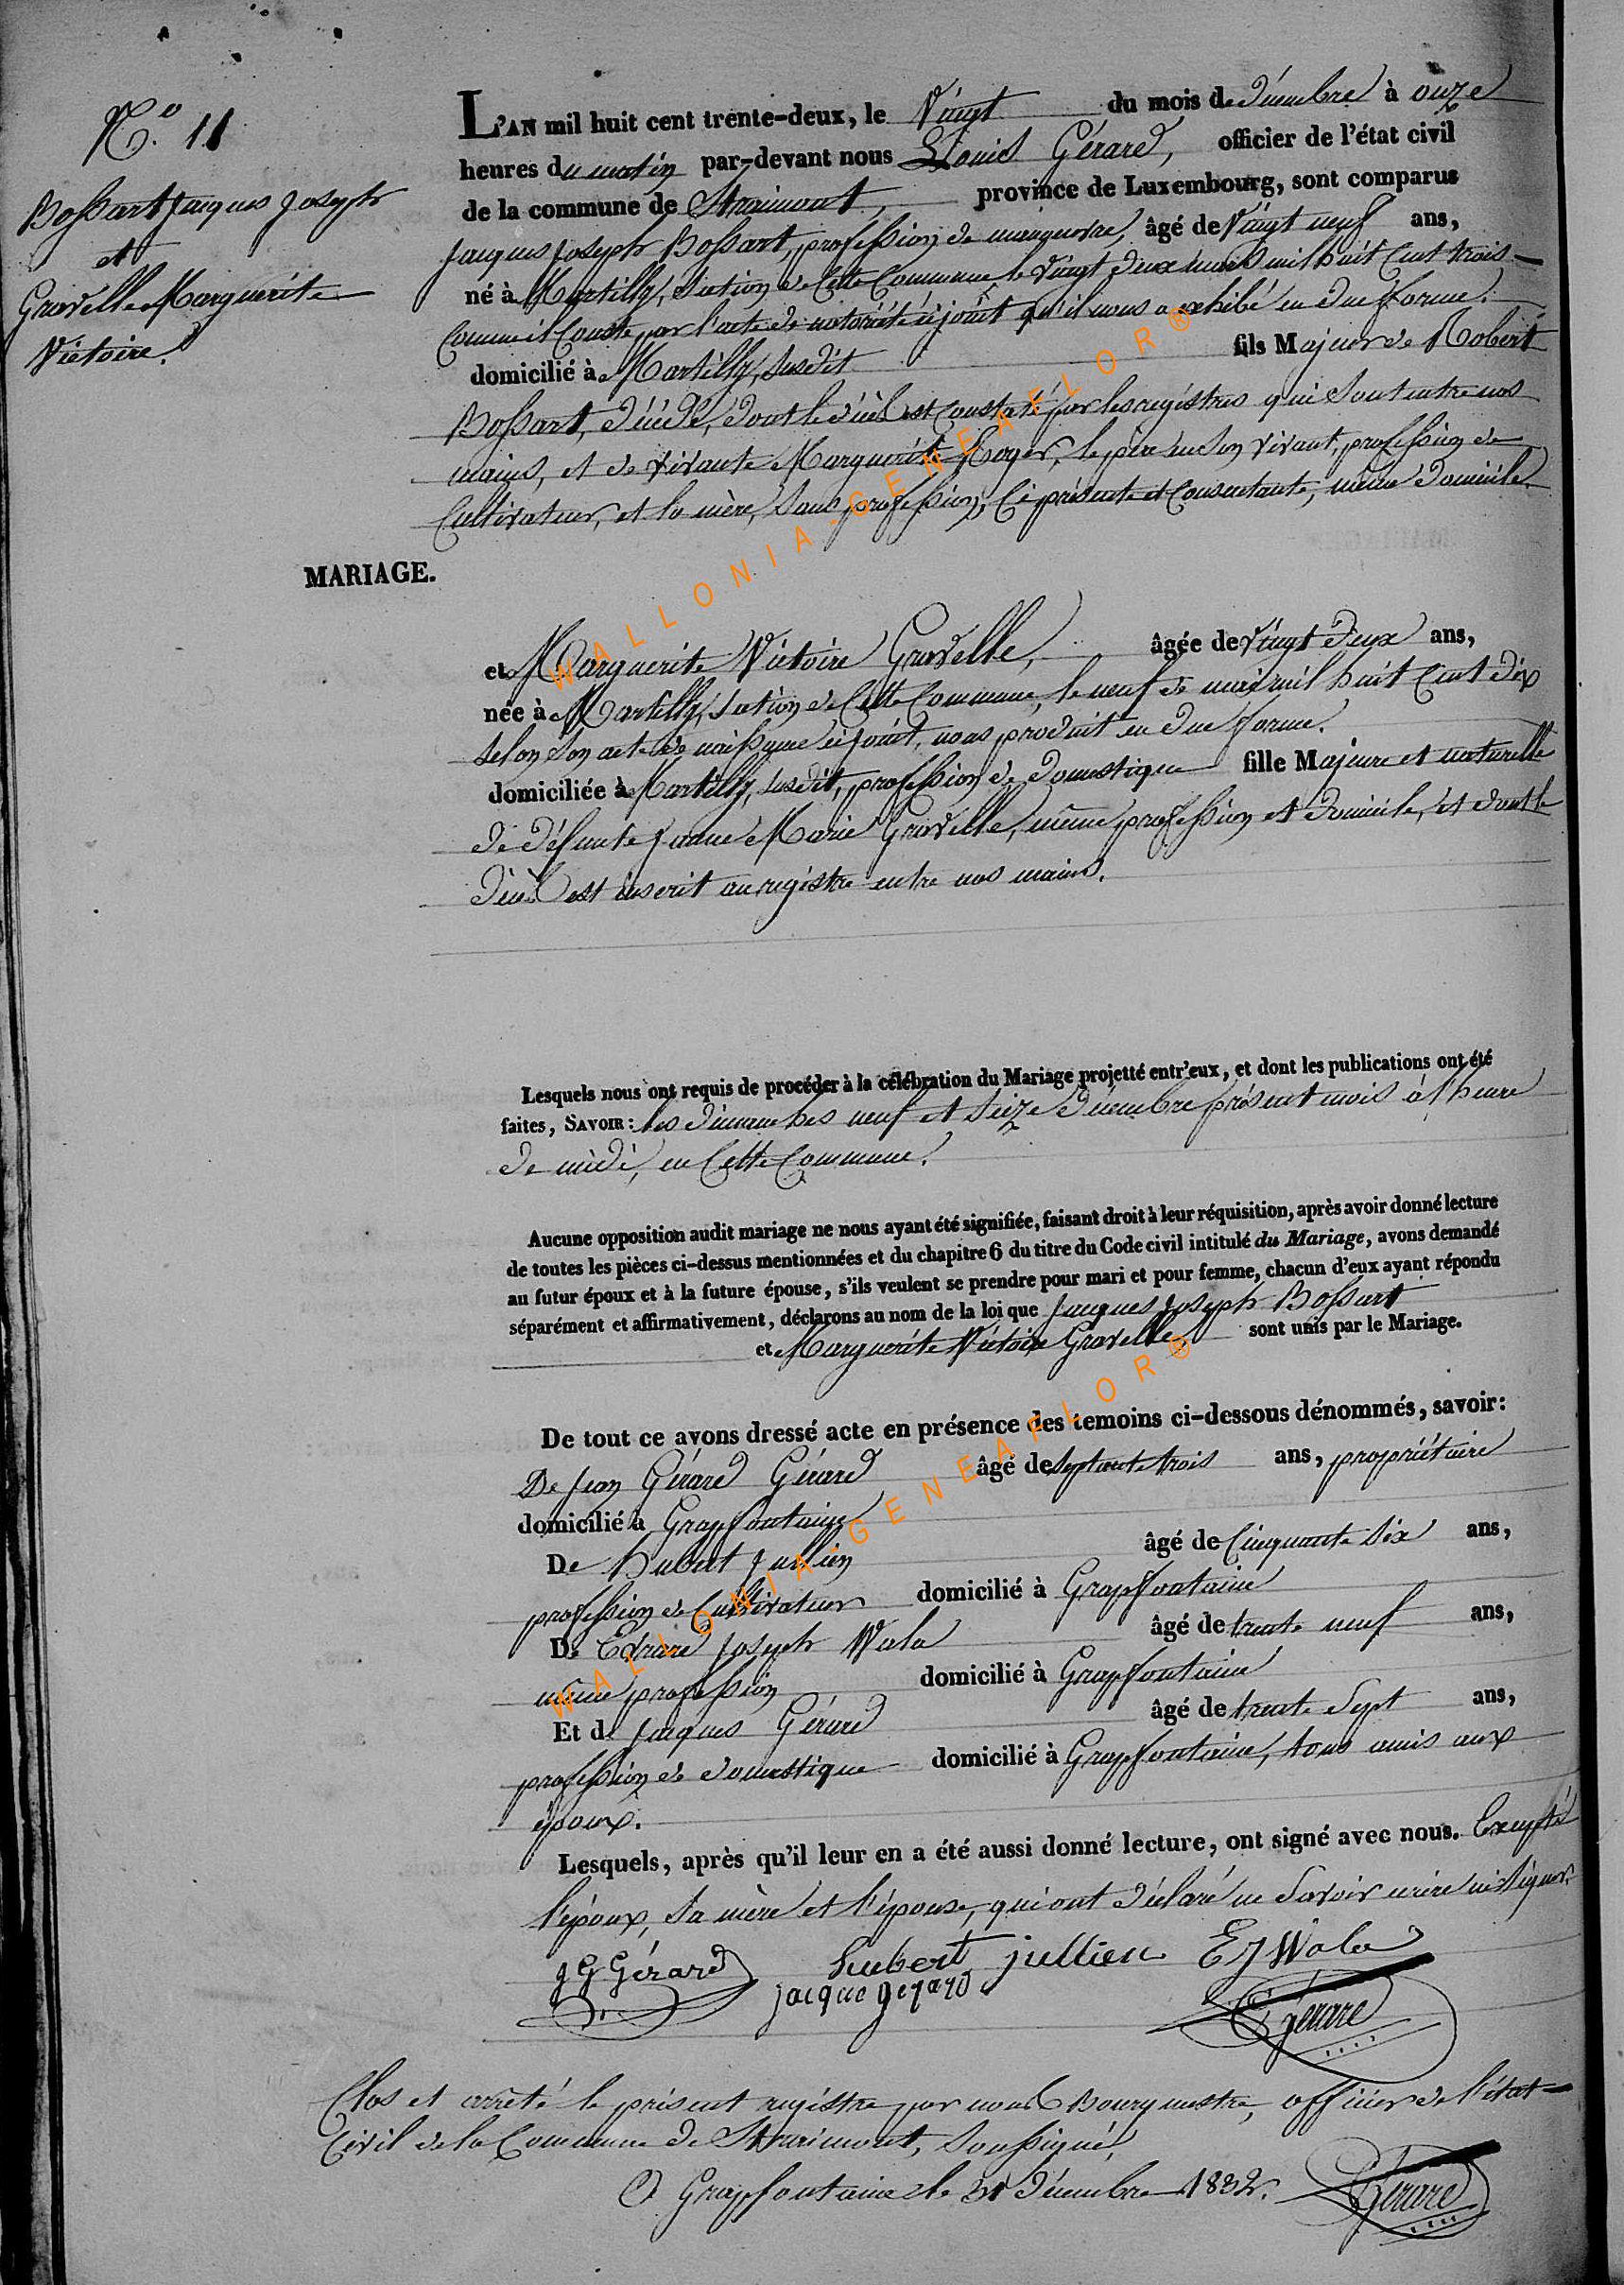 N.° 11
Bossart Jacques Joseph
et
Gravelle Marguerite
Victoire.
L'AN mil huit cent trente-deux, le Vingt du mois de décembre à onze
heures du matin par-devant nous Louis Gérard, officier de l'état civil
de la commune de Straimont, province de Luxembourg, sont comparus
Jacques Joseph Bossart, profession de manœuvre, âgé de Vingt neuf ans,
né à Martilly, Section de Cette Commune, le Vingt deux mars mil huit Cent trois
Comme il Conste par l'acte de notoriété ci joint qu'il nous a exhibé en due forme.
domicilié à Martilly, susdit fils Majeur de Robert
Bossart, décédé, dont le décès est Constaté par les registres qui sont entre nos
mains, et de vivante Marguerite Roger, le père en son vivant, profession de
Cultivateur, et la mère, sans profession, Ci présente et Consentante, même domicile.
MARIAGE.
et Marguerite Victoire Gravelle, âgée de Vingt deux ans,
née à Martilly, section de Cette Commune, le neuf de mai mil huit Cent dix
selon son acte de naissance ci joint, nous produit en due forme.
domiciliée à Martilly, susdit, profession de domestique fille Majeure et naturelle
de défunte Jeanne Marie Gravelle, même profession et domicile, et dont le
décès est inscrit au registre entre nos mains.
Lesquels nous ont requis de procéder à la célébration du Mariage projetté entr'eux, et dont les publications ont été
faites, SAVOIR: les dimanches neuf et seize décembre présent mois à l'heure
de midi, en Cette Commune.
Aucune opposition audit mariage ne nous ayant été signifiée, faisant droit à leur réquisition, après avoir donné lecture
de toutes les pièces ci-dessus mentionnées et du chapitre 6 du titre du Code civil intitulé du Mariage, avons demandé
au futur époux et à la future épouse, s'ils veulent se prendre pour mari et pour femme, chacun d'eux ayant répondu
séparément et affirmativement, déclarons au nom de la loi que Jacques Joseph Bossart
et Marguerite Victoire Gravelle, sont unis par le Mariage.
De tout ce avons dressé acte en présence des témoins ci-dessous dénommés, savoir:
De Jean Gérard Gérard âgé de septante trois ans, propriétaire
domicilié à Grapfontaine
De Hubert Jullien âgé de Cinquante six ans,
profession de Cultivateur domicilié à Grapfontaine
De Evrard Joseph Wala âgé de trente neuf ans,
même profession domicilié à Grapfontaine
Et de Jacques Gérard âgé de trente Sept ans,
profession de domestique domicilié à Grapfontaine, tous amis aux
époux.
Lesquels, après qu'il leur en a été aussi donné lecture, ont signé avec nous. Excepté
l'époux, sa mère et l'épouse, qui ont déclaré ne Savoir écrire ni signer.
J G Gérard Hubert jullien E J Wala
jacque gerard L Gérard
Clos et arrêté le présent registre par nous Bourgmestre, officier de l'état
Civil de la Commune de Straimont, Soussigné,
A Grapfontaine le 31 décembre 1832.
L Gérard
WALLONIA-GENEAFLOR®
WALLONIA-GENEAFLOR®